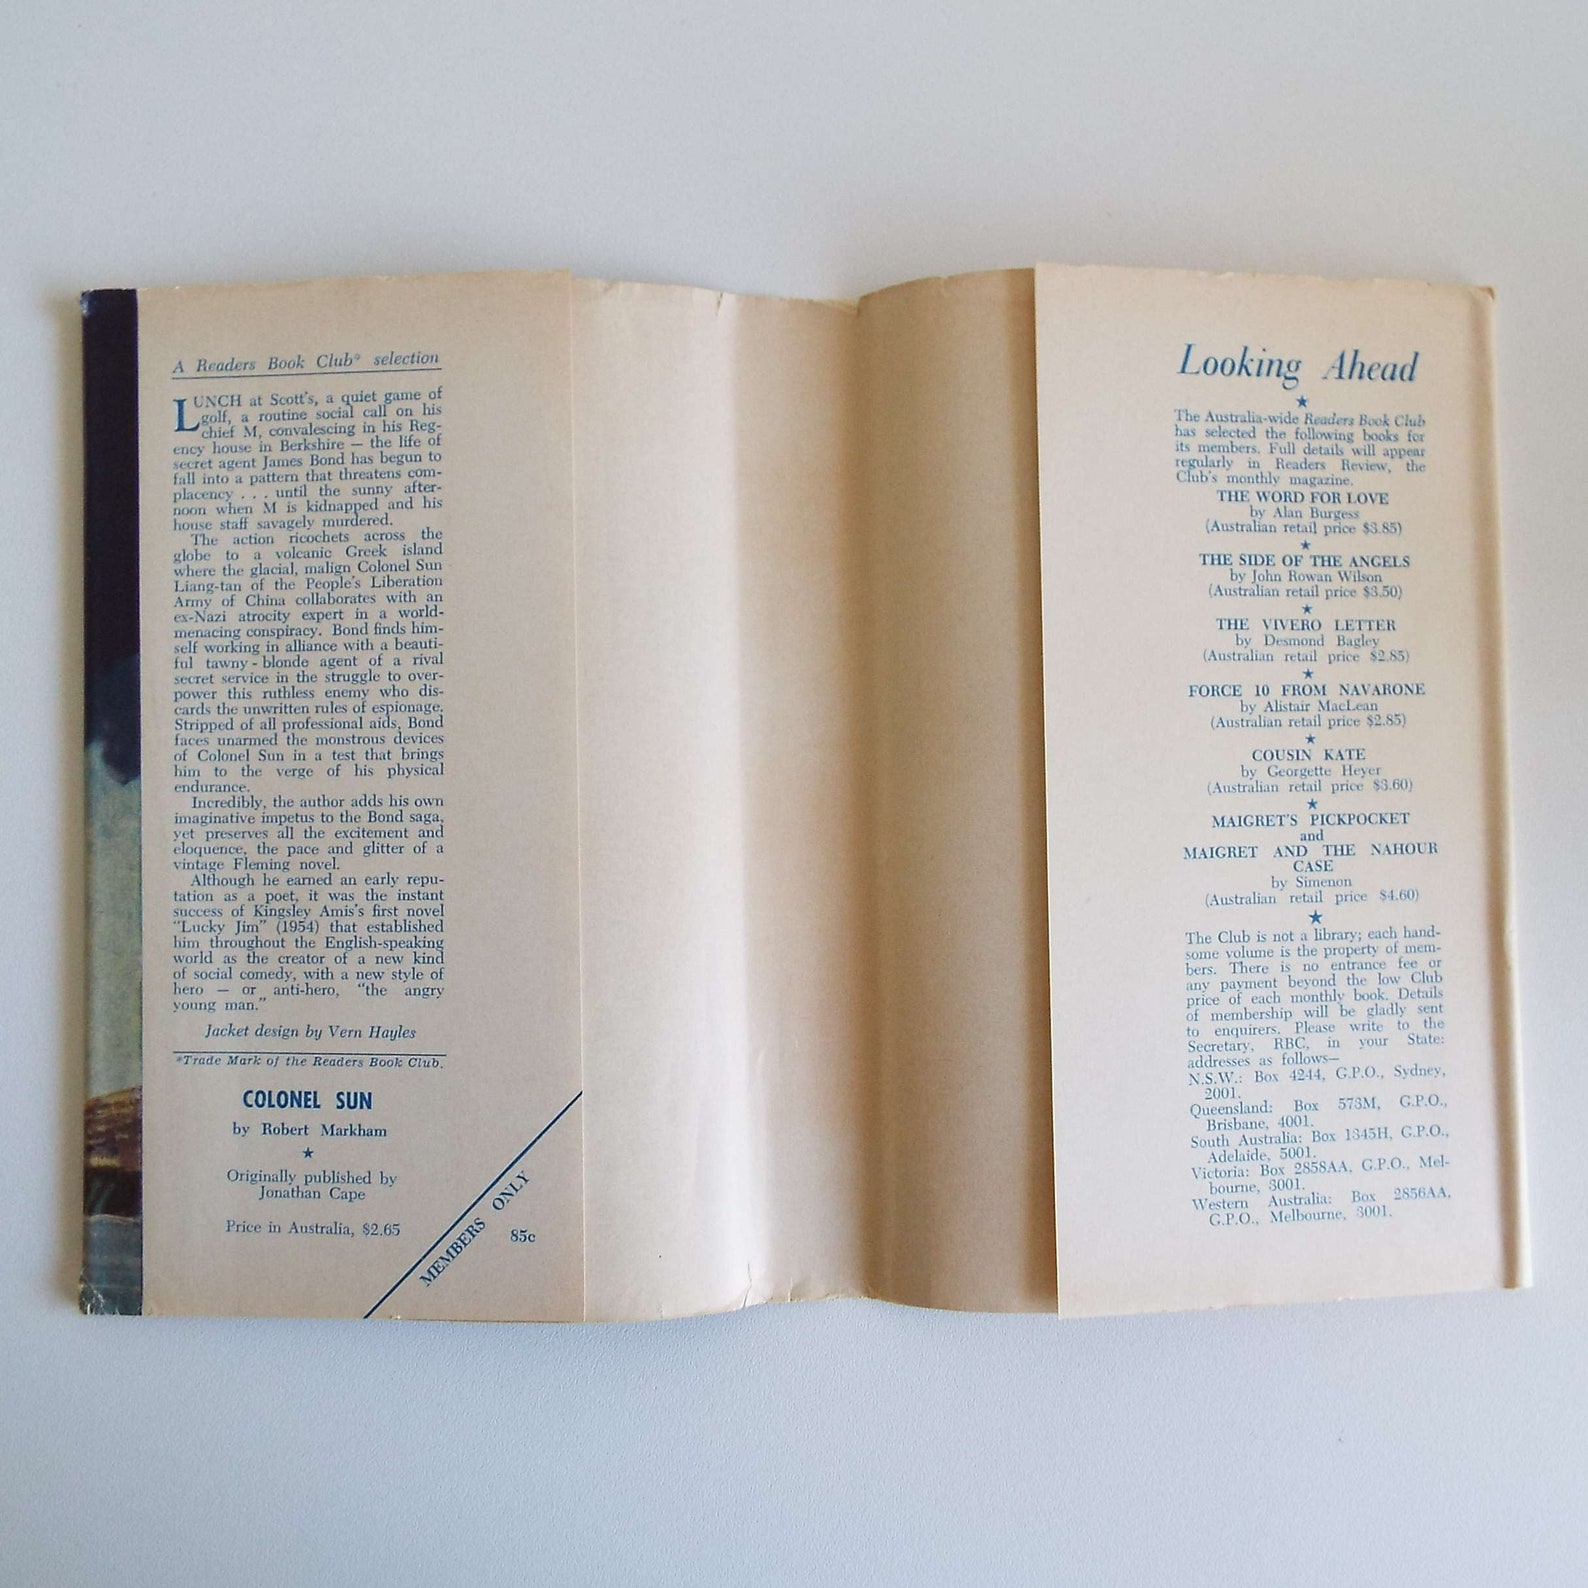 A Readers Book Club* selection
LUNCH at Scott's, a quiet game of
golf, a routine social call on his
chief M, convalescing in his Reg-
ency house in Berkshire — the life of
secret agent James Bond has begun to
fall into a pattern that threatens com-
placency . . . until the sunny after-
noon when M is kidnapped and his
house staff savagely murdered.
The action ricochets across the
globe to a volcanic Greek island
where the glacial, malign Colonel Sun
Liang-tan of the People's Liberation
Army of China collaborates with an
ex-Nazi atrocity expert in a world-
menacing conspiracy. Bond finds him-
self working in alliance with a beauti-
ful tawny - blonde agent of a rival
secret service in the struggle to over-
power this ruthless enemy who dis-
cards the unwritten rules of espionage.
Stripped of all professional aids, Bond
faces unarmed the monstrous devices
of Colonel Sun in a test that brings
him to the verge of his physical
endurance.
Incredibly, the author adds his own
imaginative impetus to the Bond saga,
yet preserves all the excitement and
eloquence, the pace and glitter of a
vintage Fleming novel.
Although he earned an early repu-
tation as a poet, it was the instant
success of Kingsley Amis's first novel
"Lucky Jim" (1954) that established
him throughout the English-speaking
world as the creator of a new kind
of social comedy, with a new style of
hero — or anti-hero, "the angry
young man."
Jacket design by Vern Hayles
*Trade Mark of the Readers Book Club.
COLONEL SUN
by Robert Markham
★
Originally published by
Jonathan Cape
Price in Australia, $2.65
MEMBERS ONLY
85c
Looking Ahead
★
The Australia-wide Readers Book Club
has selected the following books for
its members. Full details will appear
regularly in Readers Review, the
Club's monthly magazine.
THE WORD FOR LOVE
by Alan Burgess
(Australian retail price $3.85)
★
THE SIDE OF THE ANGELS
by John Rowan Wilson
(Australian retail price $3.50)
★
THE VIVERO LETTER
by Desmond Bagley
(Australian retail price $2.85)
★
FORCE 10 FROM NAVARONE
by Alistair MacLean
(Australian retail price $2.85)
★
COUSIN KATE
by Georgette Heyer
(Australian retail price $3.60)
★
MAIGRET'S PICKPOCKET
and
MAIGRET AND THE NAHOUR
CASE
by Simenon
(Australian retail price $4.60)
★
The Club is not a library; each hand-
some volume is the property of mem-
bers. There is no entrance fee or
any payment beyond the low Club
price of each monthly book. Details
of membership will be gladly sent
to enquirers. Please write to the
Secretary, RBC, in your State:
addresses as follows—
N.S.W.: Box 4244, G.P.O., Sydney,
2001.
Queensland: Box 573M, G.P.O.,
Brisbane, 4001.
South Australia: Box 1345H, G.P.O.,
Adelaide, 5001.
Victoria: Box 2858AA, G.P.O., Mel-
bourne, 3001.
Western Australia: Box 2856AA,
G.P.O., Melbourne, 3001.